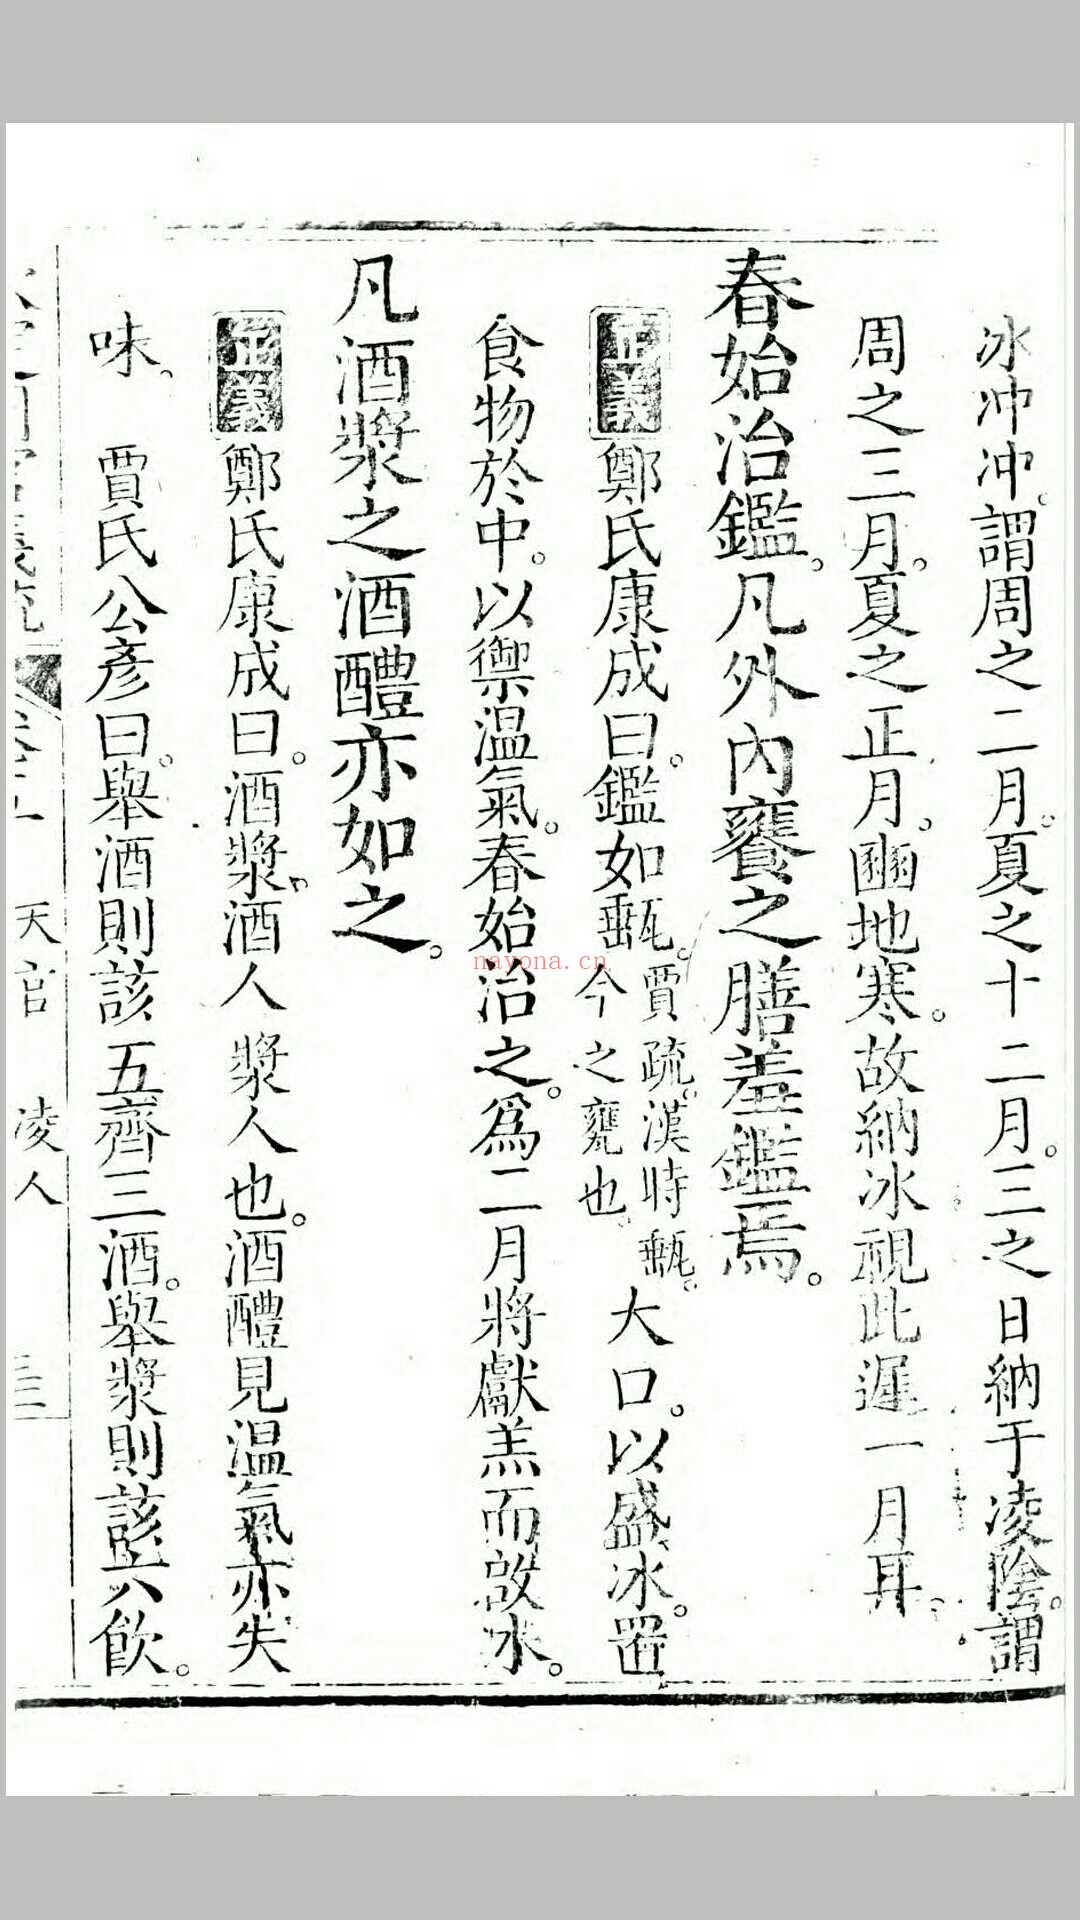 冰沖沖。謂周之二月。夏之十二月。三之日納于凌陰。謂
周之三月。夏之正月。豳地寒。故納冰視此遲一月耳。
春始治鑑。凡外內饔之膳羞鑑焉。
正義 鄭氏康成曰。鑑如甀。賈疏。漢時甀。今之甕也。大口。以盛冰。置
食物於中。以禦温氣。春始治之。爲二月將獻羔而啟冰。
凡酒漿之酒醴亦如之。
正義 鄭氏康成曰。酒漿。酒人漿人也。酒醴見温氣亦失
味。 賈氏公彥曰。舉酒則該五齊三酒。舉漿則該六飲。
天官 凌人
nayona.cn